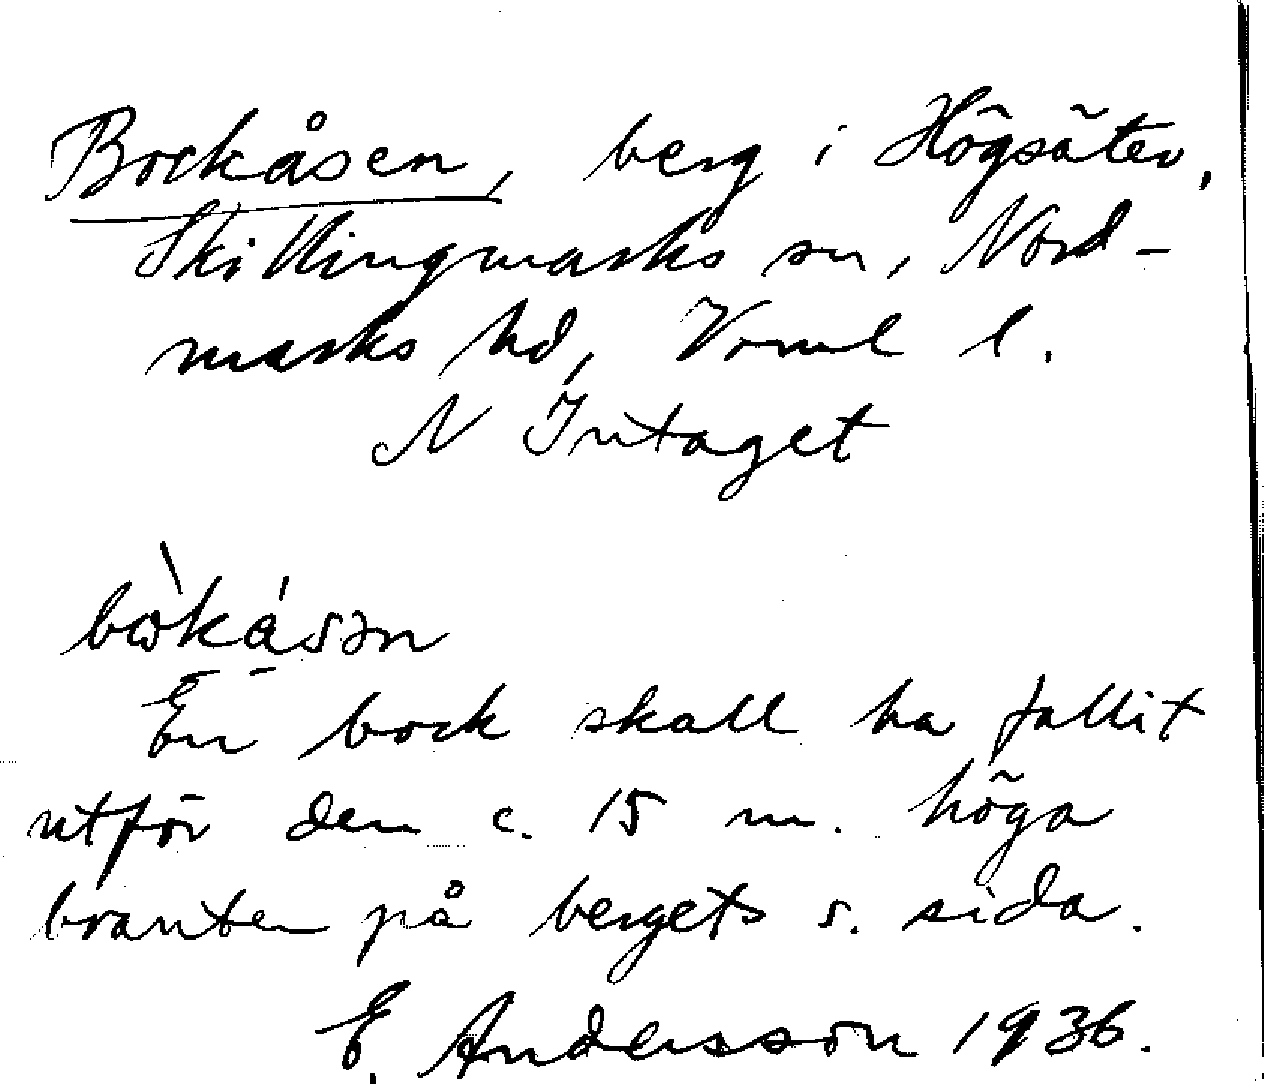 Bockåsen, berg i Högsäter,
Skillingmarks sn, Nord-
marks hd, Vrml l.
N Intaget
En bock skall ha fallit
utför den c. 15 m. höga
branten på bergets s. sida.
E. Andersson 1936.